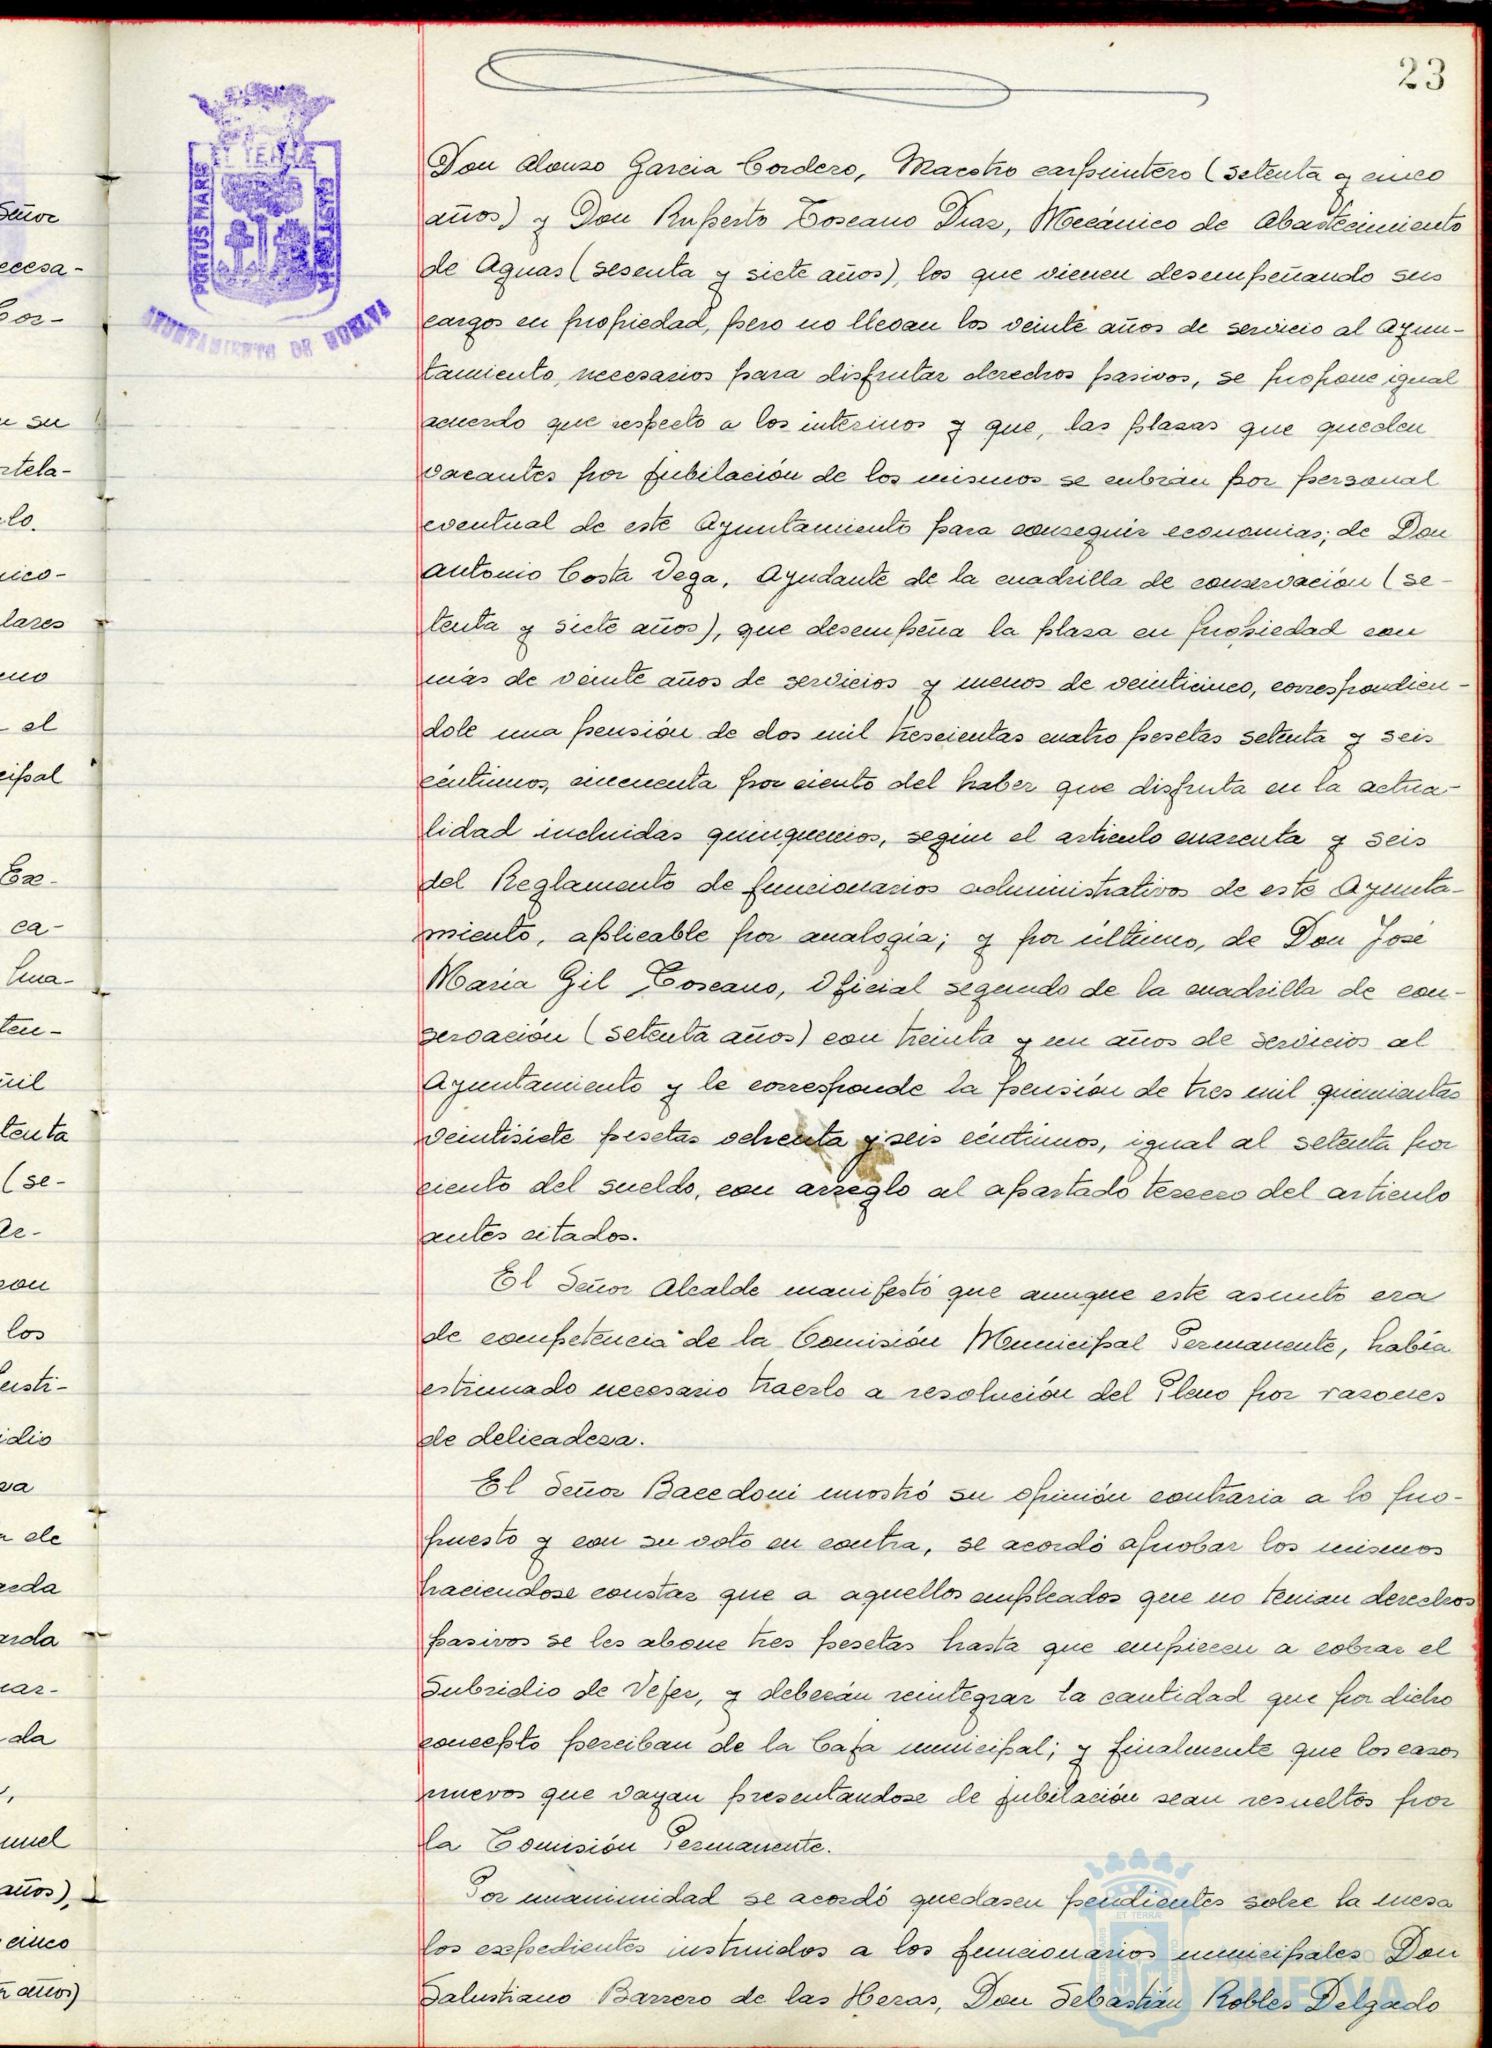 23
Don Alonso Garcia Cordero, Maestro carpintero (setenta y cinco
años) y Don Ruperto Toscano Diaz, Mecánico de Abastecimiento
de Aguas (sesenta y siete años), los que vienen desempeñando sus
cargos en propiedad, pero no llevan los veinte años de servicio al Ayun-
tamiento, necesarios para disfrutar derechos pasivos, se propone igual
acuerdo que respecto a los interinos y que, las plazas que queden
vacantes por jubilación de los mismos se cubrán por personal
eventual de este Ayuntamiento para conseguir economias; de Don
Antonio Costa Vega, Ayudante de la cuadrilla de conservación (se-
tenta y siete años), que desempeña la plaza en propiedad con
más de veinte años de servicios y menos de veinticinco, correspondien-
dole una pensión de dos mil trescientas cuatro pesetas setenta y seis
céntimos, cincuenta por ciento del haber que disfruta en la actua-
lidad incluidas quinquenios, según el articulo cuarenta y seis
del Reglamento de funcionarios administrativos de este Ayunta-
miento, aplicable por analogía; y por último, de Don José
María Gil Toscano, Oficial segundo de la cuadrilla de con-
servación (setenta años) con treinta y un años de servicios al
Ayuntamiento y le corresponde la pensión de tres mil quinientas
veintisiete pesetas ochenta y seis céntimos, igual al setenta por
ciento del sueldo, con arreglo al apartado tercero del articulo
antes citados.
El Señor Alcalde manifestó que aunque este asunto era
de competencia de la Comisión Municipal Permanente, había
estimado necesario traerlo a resolución del Pleno por razones
de delicadeza.
El Señor Bacedoni mostró su opinión contraria a lo pro-
puesto y con su voto en contra, se acordó aprobar los mismos
haciendose constar que a aquellos empleados que no tenian derechos
pasivos se les abone tres pesetas hasta que empiecen a cobrar el
Subsidio de Vejez, y deberán reintegrar la cantidad que por dicho
concepto perciban de la Caja municipal; y finalmente que los casos
nuevos que vayan presentandose de jubilación sean resueltos por
la Comisión Permanente.
Por unanimidad se acordó quedasen pendientes sobre la mesa
los expedientes instruidos a los funcionarios municipales Don
Salustiano Barrero de las Heras, Don Sebastián Robles Delgado
PORTUS MARIS
ET TERRÆ
AYUNTAMIENTO DE HUELVA
Señor
ecesa-
Cor-
su
rtela-
lo.
nico-
lares
el
cipal
ca-
ten-
mil
tenta
(se-
con
los
idio
de
unel
años),
cinco
años)
HUELVA